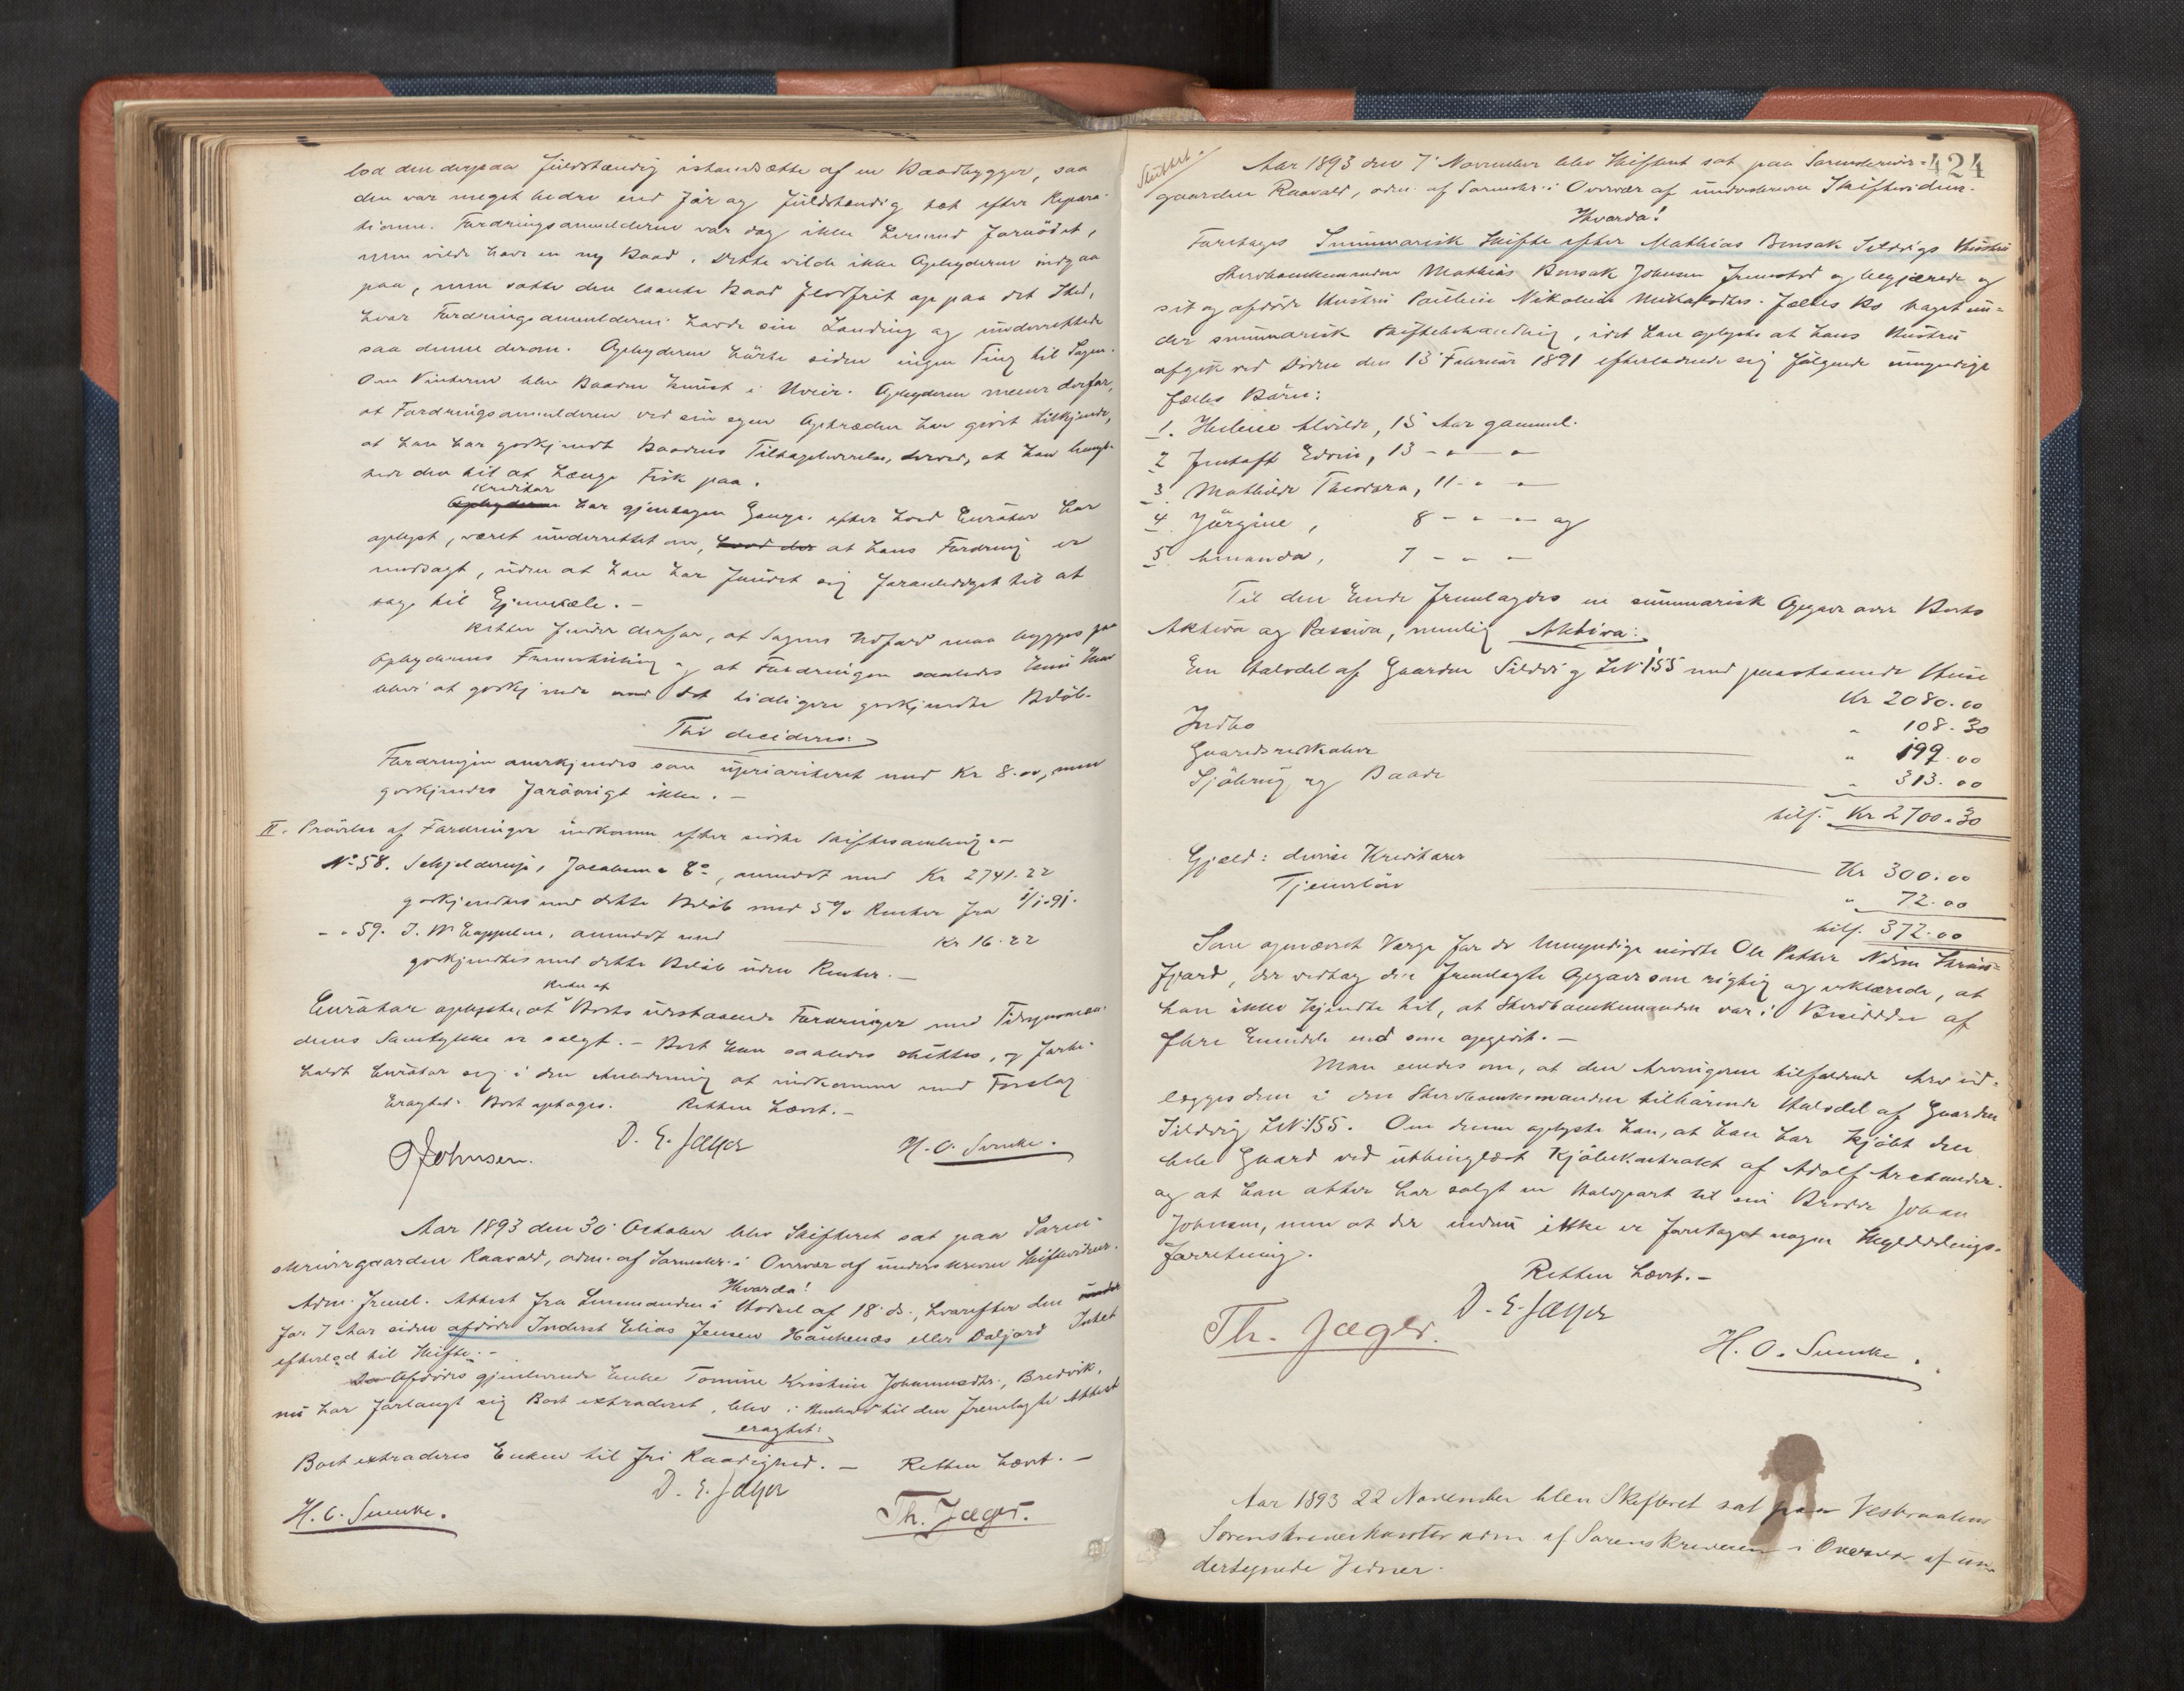 lod den derpaa fuldstændig istandsætte af en Baadbygger, saa
den var meget bedre end før og fuldstændig tæt efter Repara-
tionen. Fordringsanmelderen var dog ikke hermed fornøiet,
men vilde have en ny Baad. Dette vilde ikke Opbyderne indgaa
paa, men satte den laante Baad flodfrit op paa det Sted,
hvor Fordringsanmelderen havde sin Landing og underrettede
saa denne derom. Opbyderne hørte siden ingen Ting til Sagen.
Om Vinteren blev Baaden knust i Uveir. Opbyderen mener derfor,
at Fordringsanmelderen ved sin egen Optræden har givet tilkjende,
at han har godkjendt Baadens Tilbageleverelse, derved, at han
den til at hænge Fisk paa.
Kreditor
Opbyderen har gjentagne Gange efter hvad Curator har
oplyst, været underrettet om, hvad der at hans Fordring er
modsagt, uden at han har fundet sig foranlediget til at
tage til Gjenmæle. -
Retten finder derfor, at Sagens Udfald maa bygges paa
Opbyderens Fremstilling og at Fordringen saaledes kun kan
blive at godkjende med det tidligere godkjendte Beløb.
Thi decideres:
Fordringen anerkjendes som uprioriteret med Kr 8.00, men
godkjendes forøvrigt ikke. -
II. Prøvelse af Fordringer indkomne efter sidste Skiftesamling. -
No 58. Schjelderup, Jacobsen & Co, anmeldt med Kr 2741.22
godkjendtes med dette Beløb med 5% Renter fra 1/1-91.
- " 59. J. W. Cappelen, anmeldt med Kr 16.22
godkjendtes med dette Beløb uden Renter. -
Resten af
Curator oplyste, at Boets udestaaende Fordringer med Tilsynsmæn-
denes Samtykke er solgt. - Boet kan saaledes sluttes, og forbe-
holdt Curator sig i den Anledning at indkomme med Forslag
Eragtet: Boet optages. Retten hævet. -
O Johnsen. D. E. Jæger H. O. Sverke.
Aar 1893 den 30' October blev Skifteret sat paa Soren-
skrivergaarden Raavald, adm. af Sorenskr. i Overvær af underskrevne Skiftevidner.
Hvorda!
Adm. freml. Attest fra Lensmanden i Hadsel af 18' ds., hvorefter den
for 7 Aar siden afdøde Inderst Elias Jensen Haukenæs eller Daljord Intet
efterlod til Skifte. -
Da Afdødes gjenlevende Enke Tomine Kristine Johannesdtr., Bredvik,
nu har forlangt sig Boet extraderet, blev i Henhold til den fremlagte Attest
eragtet:
Boet extraderes Enken til fri Raadighed. - Retten hævet. -
D. E. Jæger
H. O. Sverke. Th. Jæger.
424
Sluttet.
Aar 1893 den 7' November blev Skifteret sat paa Sorenskriver-
gaarden Raavald, adm. af Sorenskr. i Overvær af underskrevne Skiftevidner.
Hvorda!
Foretages Summarisk Skifte efter Mathias Bensak Sildvigs Hustru
Sterbboenkemanden Mathias Bensak Johnsen fremstod og begjærede og
sit og afdøde Hustru Pauline Nikoline Fælles Bo taget un-
der summarisk Skiftebehandling, idet han oplyste at hans Hustru
afgik ved Døden den 13' Februar 1891 efterladende sig følgende umyndige
fælles Børn:
1. Helene Alvilde, 15 Aar gammel.
2 Edvin, 13 - " - "
3. Mathilde Theodora, 11 - " - "
4. Jørgine, 8 - " - " og
5 Amanda, 7 - " - "
Til den Ende fremlagdes en summarisk Opgave over Boets
Aktiva og Passiva, nemlig Aktiva:
En Halvdel af Gaarden Sildvig LN 155 med paastaaende Huse
Kr 2080.00
Indbo " 108.30
Gaardsredskaber " 199.00
Sjøbrug og Baade " 313.00
tils. Kr 2700.30
Gjæld: diverse Kreditorer Kr 300.00
Tjenerløn " 72.00
tils. 372.00
Som opnævnt Værge for de Umyndige mødte Ole Petter Nilsen
fjord, der vedtog den fremlagte Opgave som rigtig og erklærede, at
han ikke kjendte til, at Sterbboenkemanden var i Besiddelse af
flere Eiendele end som opgivet. -
Man enedes om, at den Arvingerne tilfaldende Arv ud-
lægges dem i den Sterbboenkemanden tilhørende Halvdel af Gaarden
Sildvig LN 155. Om denne oplyste han, at han har kjøbt den
hele Gaard ved utinglæst Kjøbekontrakt af Adolf Arctander.
og at han atter har solgt en Halvpart til sin Broder Johan
Johnsen, men at der endnu ikke er foretaget nogen Skylddelings-
forretning.
Retten hævet. -
D. E. Jæger
Th. Jæger. H. O. Sverke.
Aar 1893 22 November blev Skifteret sat paa Vesteraalens
Sorenskriverkontor adm af Sorenskriveren i Overvær af un-
dertegnede Vidner.